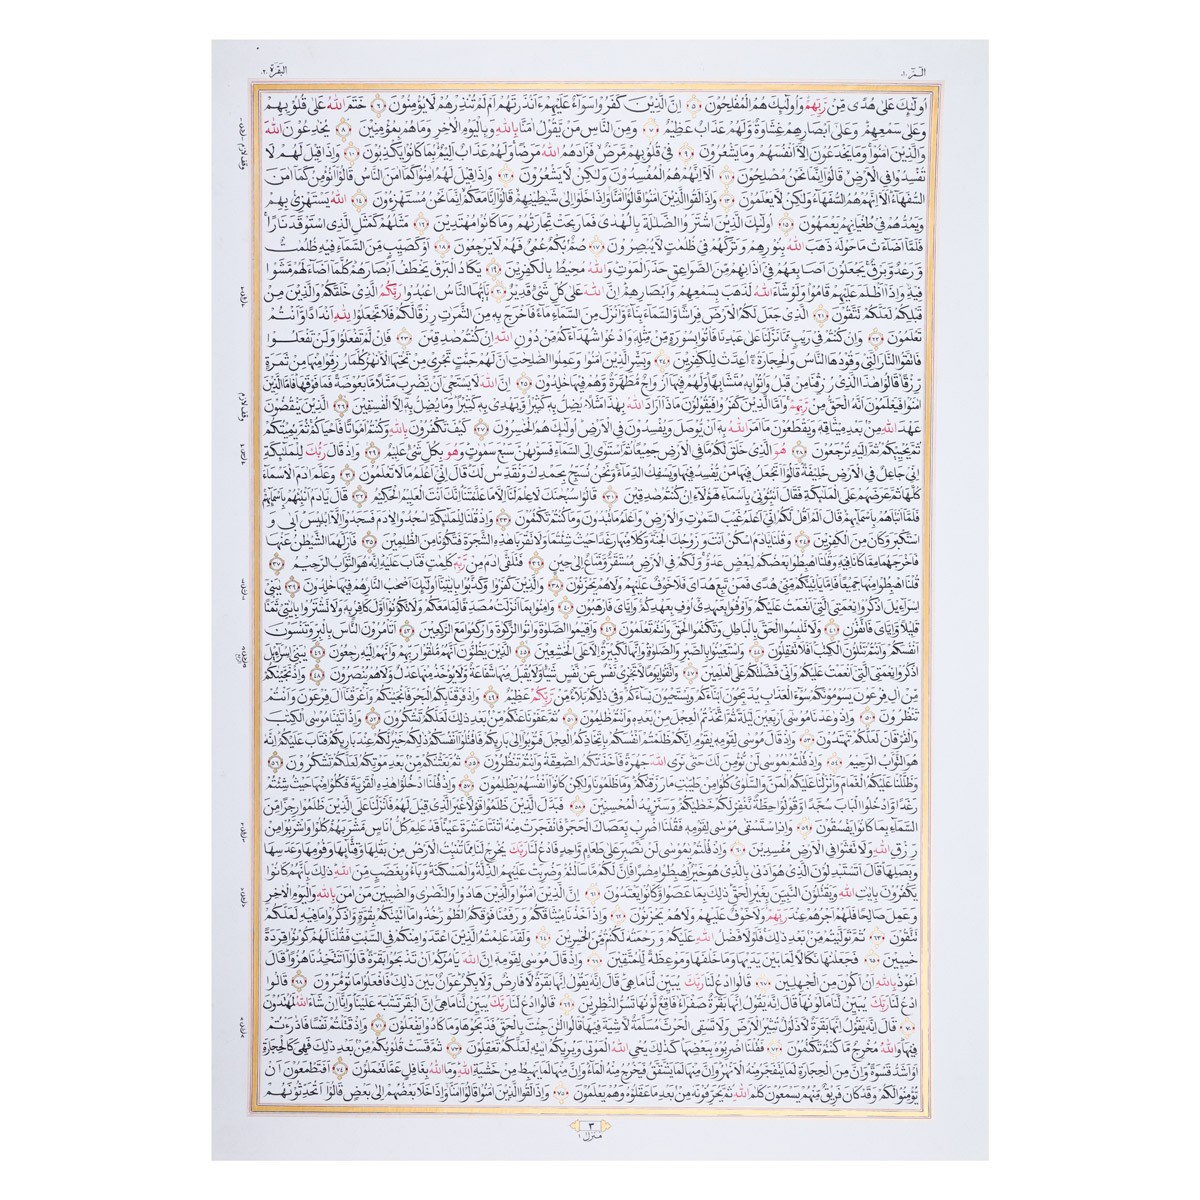 الٓمّٓ ١
البقرة ٢
اولئك على هدى من ربهم واولئك هم المفلحون ﴿٥﴾ ان الذين كفروا سواء عليهم ءانذرتهم ام لم تنذرهم لا يؤمنون ﴿٦﴾ ختم الله على قلوبهم
وعلى سمعهم وعلى ابصارهم غشاوة ولهم عذاب عظيم ﴿٧﴾ ومن الناس من يقول امنا بالله وباليوم الاخر وما هم بمؤمنين ﴿٨﴾ يخدعون الله
والذين امنوا وما يخدعون الا انفسهم وما يشعرون ﴿٩﴾ في قلوبهم مرض فزادهم الله مرضا ولهم عذاب اليم بما كانوا يكذبون ﴿١٠﴾ واذا قيل لهم لا
تفسدوا في الارض قالوا انما نحن مصلحون ﴿١١﴾ الا انهم هم المفسدون ولكن لا يشعرون ﴿١٢﴾ واذا قيل لهم امنوا كما امن الناس قالوا انؤمن كما امن
السفهاء الا انهم هم السفهاء ولكن لا يعلمون ﴿١٣﴾ واذا لقوا الذين امنوا قالوا امنا واذا خلوا الى شيطينهم قالوا انا معكم انما نحن مستهزءون ﴿١٤﴾ الله يستهزئ بهم
ويمدهم في طغيانهم يعمهون ﴿١٥﴾ اولئك الذين اشتروا الضللة بالهدى فما ربحت تجارتهم وما كانوا مهتدين ﴿١٦﴾ مثلهم كمثل الذي استوقد نارا
فلما اضاءت ما حوله ذهب الله بنورهم وتركهم في ظلمت لا يبصرون ﴿١٧﴾ صم بكم عمي فهم لا يرجعون ﴿١٨﴾ او كصيب من السماء فيه ظلمت
ورعد وبرق يجعلون اصابعهم في اذانهم من الصواعق حذر الموت والله محيط بالكفرين ﴿١٩﴾ يكاد البرق يخطف ابصارهم كلما اضاء لهم مشوا
فيه واذا اظلم عليهم قاموا ولو شاء الله لذهب بسمعهم وابصارهم ان الله على كل شيء قدير ﴿٢٠﴾ يايها الناس اعبدوا ربكم الذي خلقكم والذين من
قبلكم لعلكم تتقون ﴿٢١﴾ الذي جعل لكم الارض فراشا والسماء بناء وانزل من السماء ماء فاخرج به من الثمرت رزقا لكم فلا تجعلوا لله اندادا وانتم
تعلمون ﴿٢٢﴾ وان كنتم في ريب مما نزلنا على عبدنا فاتوا بسورة من مثله وادعوا شهداءكم من دون الله ان كنتم صدقين ﴿٢٣﴾ فان لم تفعلوا ولن تفعلوا
فاتقوا النار التي وقودها الناس والحجارة اعدت للكفرين ﴿٢٤﴾ وبشر الذين امنوا وعملوا الصلحت ان لهم جنت تجري من تحتها الانهر كلما رزقوا منها من ثمرة
رزقا قالوا هذا الذي رزقنا من قبل واتوا به متشابها ولهم فيها ازواج مطهرة وهم فيها خلدون ﴿٢٥﴾ ان الله لا يستحي ان يضرب مثلا ما بعوضة فما فوقها فاما الذين
امنوا فيعلمون انه الحق من ربهم واما الذين كفروا فيقولون ماذا اراد الله بهذا مثلا يضل به كثيرا ويهدي به كثيرا وما يضل به الا الفسقين ﴿٢٦﴾ الذين ينقضون
عهد الله من بعد ميثاقه ويقطعون ما امر الله به ان يوصل ويفسدون في الارض اولئك هم الخسرون ﴿٢٧﴾ كيف تكفرون بالله وكنتم امواتا فاحياكم ثم يميتكم
ثم يحييكم ثم اليه ترجعون ﴿٢٨﴾ هو الذي خلق لكم ما في الارض جميعا ثم استوى الى السماء فسوىهن سبع سموت وهو بكل شيء عليم ﴿٢٩﴾ واذ قال ربك للملئكة
اني جاعل في الارض خليفة قالوا اتجعل فيها من يفسد فيها ويسفك الدماء ونحن نسبح بحمدك ونقدس لك قال اني اعلم ما لا تعلمون ﴿٣٠﴾ وعلم ادم الاسماء
كلها ثم عرضهم على الملئكة فقال انبئوني باسماء هؤلاء ان كنتم صدقين ﴿٣١﴾ قالوا سبحنك لا علم لنا الا ما علمتنا انك انت العليم الحكيم ﴿٣٢﴾ قال يادم انبئهم باسمائهم
فلما انباهم باسمائهم قال الم اقل لكم اني اعلم غيب السموت والارض واعلم ما تبدون وما كنتم تكتمون ﴿٣٣﴾ واذ قلنا للملئكة اسجدوا لادم فسجدوا الا ابليس ابى و
استكبر وكان من الكفرين ﴿٣٤﴾ وقلنا يادم اسكن انت وزوجك الجنة وكلا منها رغدا حيث شئتما ولا تقربا هذه الشجرة فتكونا من الظلمين ﴿٣٥﴾ فازلهما الشيطن عنها
فاخرجهما مما كانا فيه وقلنا اهبطوا بعضكم لبعض عدو ولكم في الارض مستقر ومتاع الى حين ﴿٣٦﴾ فتلقى ادم من ربه كلمت فتاب عليه انه هو التواب الرحيم ﴿٣٧﴾
قلنا اهبطوا منها جميعا فاما ياتينكم مني هدى فمن تبع هداي فلا خوف عليهم ولا هم يحزنون ﴿٣٨﴾ والذين كفروا وكذبوا بايتنا اولئك اصحب النار هم فيها خلدون ﴿٣٩﴾ يبني
اسراءيل اذكروا نعمتي التي انعمت عليكم واوفوا بعهدي اوف بعهدكم واياي فارهبون ﴿٤٠﴾ وامنوا بما انزلت مصدقا لما معكم ولا تكونوا اول كافر به ولا تشتروا بايتي ثمنا
قليلا واياي فاتقون ﴿٤١﴾ ولا تلبسوا الحق بالباطل وتكتموا الحق وانتم تعلمون ﴿٤٢﴾ واقيموا الصلوة واتوا الزكوة واركعوا مع الركعين ﴿٤٣﴾ اتامرون الناس بالبر وتنسون
انفسكم وانتم تتلون الكتب افلا تعقلون ﴿٤٤﴾ واستعينوا بالصبر والصلوة وانها لكبيرة الا على الخشعين ﴿٤٥﴾ الذين يظنون انهم ملقوا ربهم وانهم اليه رجعون ﴿٤٦﴾ يبني اسراءيل
اذكروا نعمتي التي انعمت عليكم واني فضلتكم على العلمين ﴿٤٧﴾ واتقوا يوما لا تجزي نفس عن نفس شيئا ولا يقبل منها شفاعة ولا يؤخذ منها عدل ولا هم ينصرون ﴿٤٨﴾ واذ نجينكم
من ال فرعون يسومونكم سوء العذاب يذبحون ابناءكم ويستحيون نساءكم وفي ذلكم بلاء من ربكم عظيم ﴿٤٩﴾ واذ فرقنا بكم البحر فانجينكم واغرقنا ال فرعون وانتم
تنظرون ﴿٥٠﴾ واذ وعدنا موسى اربعين ليلة ثم اتخذتم العجل من بعده وانتم ظلمون ﴿٥١﴾ ثم عفونا عنكم من بعد ذلك لعلكم تشكرون ﴿٥٢﴾ واذ اتينا موسى الكتب
والفرقان لعلكم تهتدون ﴿٥٣﴾ واذ قال موسى لقومه يقوم انكم ظلمتم انفسكم باتخاذكم العجل فتوبوا الى بارئكم فاقتلوا انفسكم ذلكم خير لكم عند بارئكم فتاب عليكم انه
هو التواب الرحيم ﴿٥٤﴾ واذ قلتم يموسى لن نؤمن لك حتى نرى الله جهرة فاخذتكم الصعقة وانتم تنظرون ﴿٥٥﴾ ثم بعثنكم من بعد موتكم لعلكم تشكرون ﴿٥٦﴾
وظللنا عليكم الغمام وانزلنا عليكم المن والسلوى كلوا من طيبت ما رزقنكم وما ظلمونا ولكن كانوا انفسهم يظلمون ﴿٥٧﴾ واذ قلنا ادخلوا هذه القرية فكلوا منها حيث شئتم
رغدا وادخلوا الباب سجدا وقولوا حطة نغفر لكم خطيكم وسنزيد المحسنين ﴿٥٨﴾ فبدل الذين ظلموا قولا غير الذي قيل لهم فانزلنا على الذين ظلموا رجزا من
السماء بما كانوا يفسقون ﴿٥٩﴾ واذ استسقى موسى لقومه فقلنا اضرب بعصاك الحجر فانفجرت منه اثنتا عشرة عينا قد علم كل اناس مشربهم كلوا واشربوا من
رزق الله ولا تعثوا في الارض مفسدين ﴿٦٠﴾ واذ قلتم يموسى لن نصبر على طعام واحد فادع لنا ربك يخرج لنا مما تنبت الارض من بقلها وقثائها وفومها وعدسها
وبصلها قال اتستبدلون الذي هو ادنى بالذي هو خير اهبطوا مصرا فان لكم ما سالتم وضربت عليهم الذلة والمسكنة وباءو بغضب من الله ذلك بانهم كانوا
يكفرون بايت الله ويقتلون النبين بغير الحق ذلك بما عصوا وكانوا يعتدون ﴿٦١﴾ ان الذين امنوا والذين هادوا والنصرى والصبئين من امن بالله واليوم الاخر
وعمل صالحا فلهم اجرهم عند ربهم ولا خوف عليهم ولا هم يحزنون ﴿٦٢﴾ واذ اخذنا ميثاقكم ورفعنا فوقكم الطور خذوا ما اتينكم بقوة واذكروا ما فيه لعلكم
تتقون ﴿٦٣﴾ ثم توليتم من بعد ذلك فلولا فضل الله عليكم ورحمته لكنتم من الخسرين ﴿٦٤﴾ ولقد علمتم الذين اعتدوا منكم في السبت فقلنا لهم كونوا قردة
خسئين ﴿٦٥﴾ فجعلنها نكالا لما بين يديها وما خلفها وموعظة للمتقين ﴿٦٦﴾ واذ قال موسى لقومه ان الله يامركم ان تذبحوا بقرة قالوا اتتخذنا هزوا قال
اعوذ بالله ان اكون من الجهلين ﴿٦٧﴾ قالوا ادع لنا ربك يبين لنا ما هي قال انه يقول انها بقرة لا فارض ولا بكر عوان بين ذلك فافعلوا ما تؤمرون ﴿٦٨﴾ قالوا
ادع لنا ربك يبين لنا ما لونها قال انه يقول انها بقرة صفراء فاقع لونها تسر النظرين ﴿٦٩﴾ قالوا ادع لنا ربك يبين لنا ما هي ان البقر تشبه علينا وانا ان شاء الله لمهتدون
﴿٧٠﴾ قال انه يقول انها بقرة لا ذلول تثير الارض ولا تسقي الحرث مسلمة لا شية فيها قالوا الن جئت بالحق فذبحوها وما كادوا يفعلون ﴿٧١﴾ واذ قتلتم نفسا فادرءتم
فيها والله مخرج ما كنتم تكتمون ﴿٧٢﴾ فقلنا اضربوه ببعضها كذلك يحي الله الموتى ويريكم ايته لعلكم تعقلون ﴿٧٣﴾ ثم قست قلوبكم من بعد ذلك فهي كالحجارة
او اشد قسوة وان من الحجارة لما يتفجر منه الانهر وان منها لما يشقق فيخرج منه الماء وان منها لما يهبط من خشية الله وما الله بغافل عما تعملون ﴿٧٤﴾ افتطمعون ان
يؤمنوا لكم وقد كان فريق منهم يسمعون كلم الله ثم يحرفونه من بعد ما عقلوه وهم يعلمون ﴿٧٥﴾ واذا لقوا الذين امنوا قالوا امنا واذا خلا بعضهم الى بعض قالوا اتحدثونهم
٣
منزل ١
وقف لازم
وقف لازم